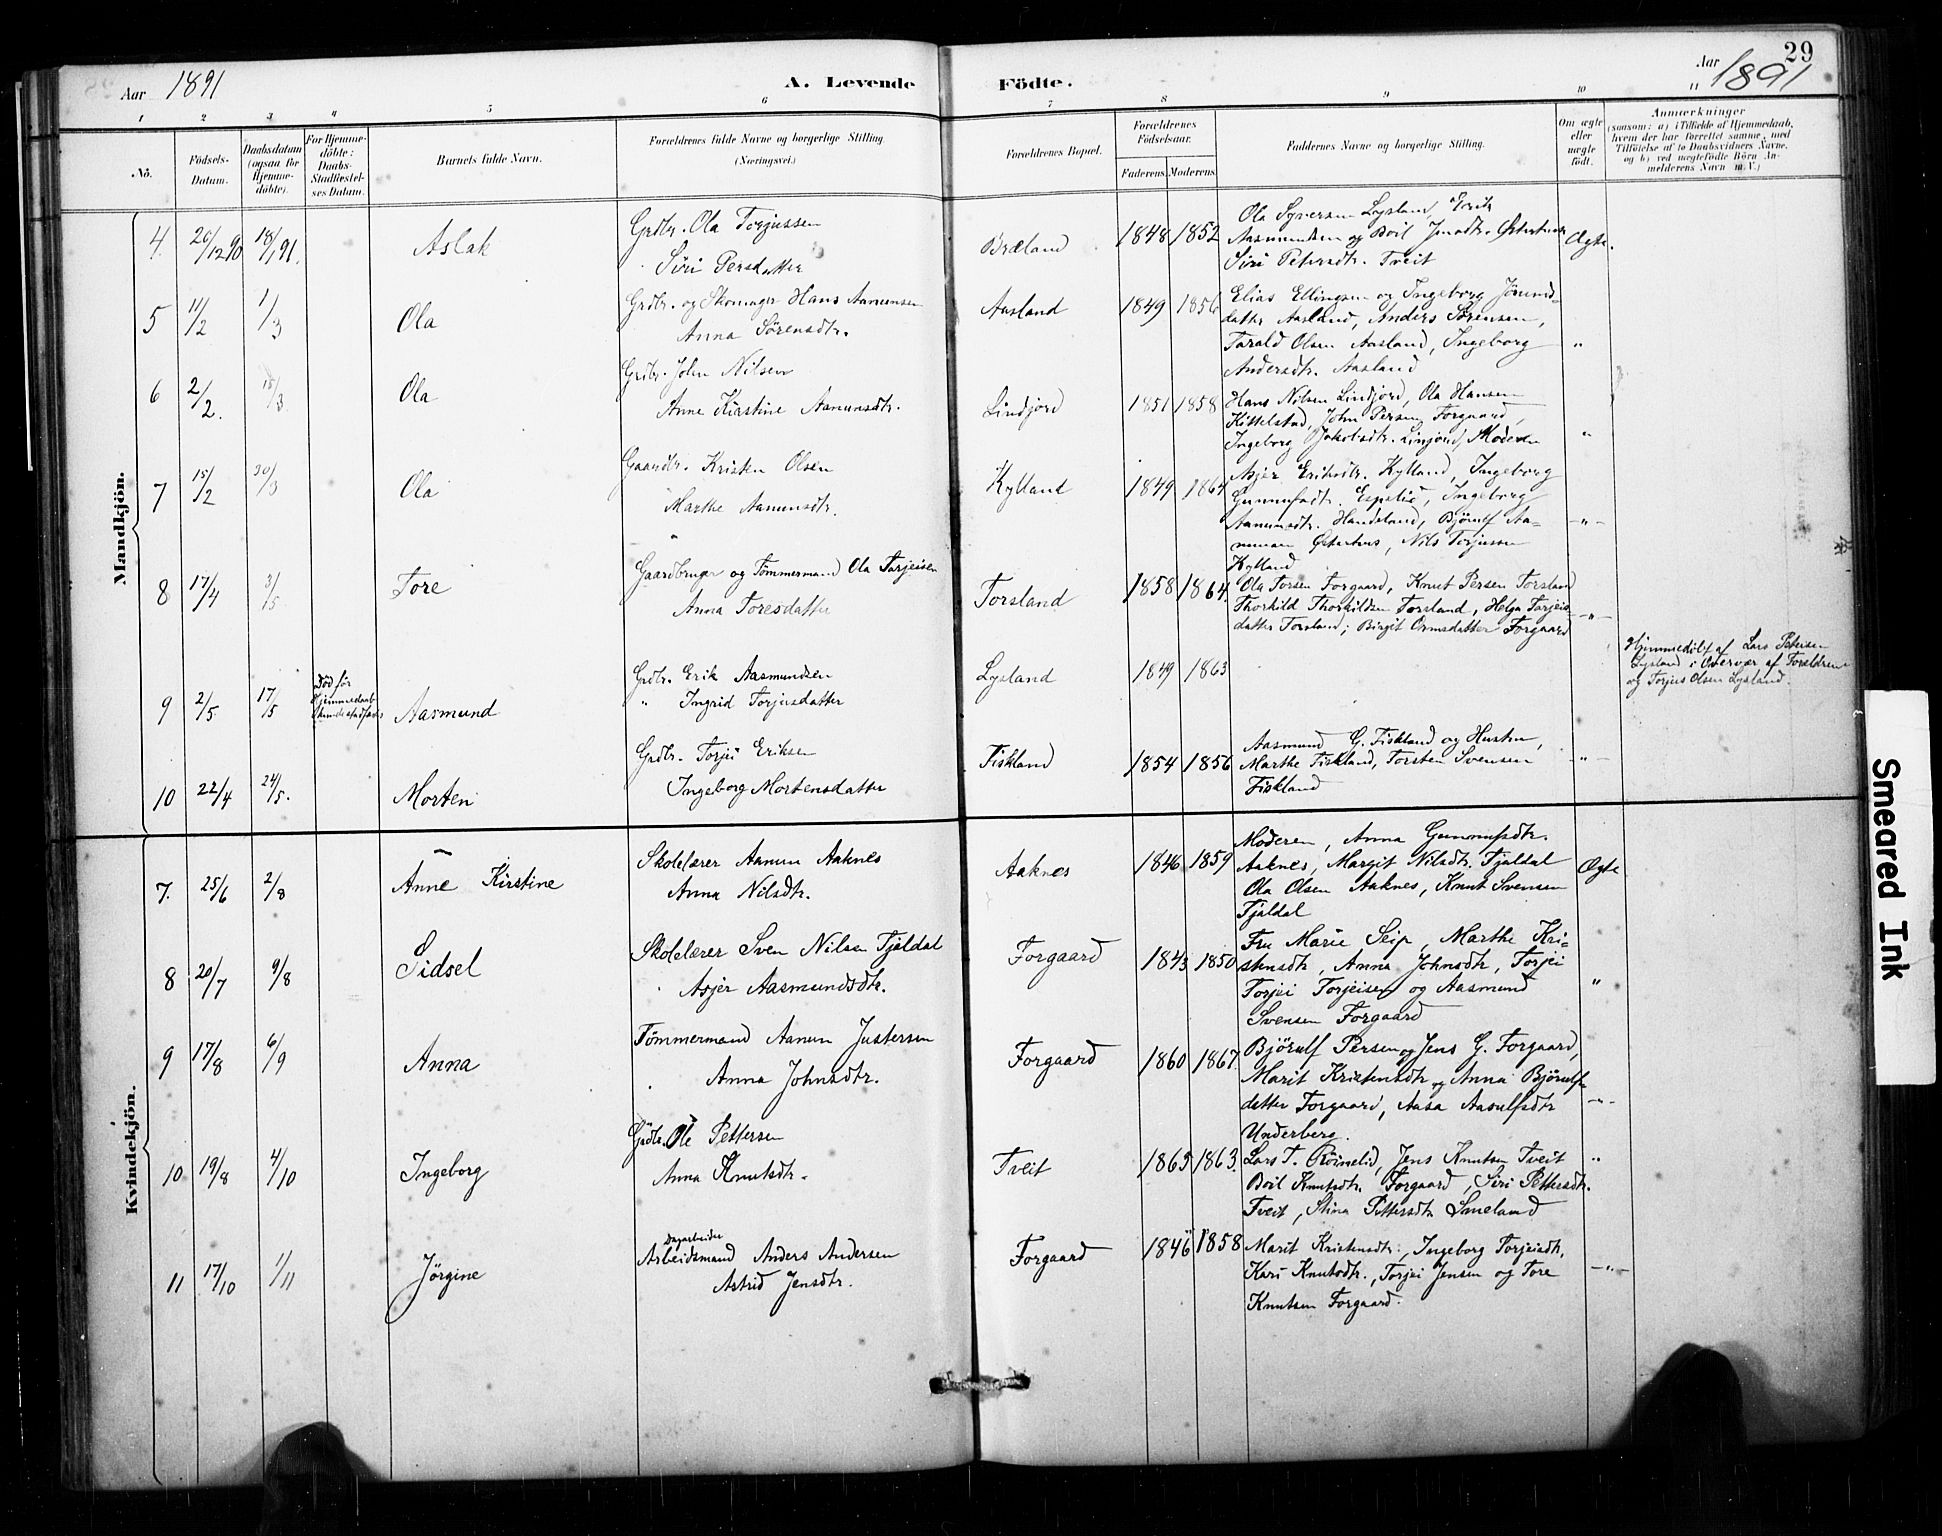 29
Aar 1891
A. Levende Födte.
Aar 1891
1 2 3 4 5 6 7 8 9 10 11
Nö.
Födsels-Datum.
Daabsdatum (ogsaa for Hjemmedöbte).
For Hjemmedöbte: Daabs-Stadfæstelses Datum.
Barnets fulde Navn.
Forældrenes fulde Navne og borgerlige Stilling. (Næringsvei.)
Forældrenes Bopæl.
Forældrenes Födselsaar.
Faderens. Moderens.
Faddernes Navne og borgerlige Stilling.
Om ægte eller uægte födt.
Anmærkninger
(saasom: a) i Tilfælde af Hjemmedaab, hvem der har forrettet samme, med Tilföielse af to Daabsvidners Navne, og b) ved uægtefödte Börn Anmelderens Navn m.V.)
Mandkjön.
4. 26/12 90 18/1 91. Aslak
Grdbr. Ola Torjussen
Siri Persdatter
Bræland 1848 1852
Ola Syversen Lysland,
Aasmundsen og Boil Jensdtr.
Siri Petersdtr. Tveit
Ægte.
5 11/2 1/3 Ola
Grdbr. og Skomager Hans Aanunsen
Anna Sörensdtr.
Aasland 1849 1856
Elias Ellingsen og Ingeborg Jörunds-
datter Aasland, Anders Sörensen,
Tarald Olsen Aasland, Ingeborg
Andersdtr. Aasland
"
6 2/2. 15/3 Ola
Grdbr. John Nilsen
Anne Kirstine Aanunsdtr.
Lindjord 1851 1858
Hans Nilsen Lindjord, Ola Hansen
Kittelstad, John Persen Forgaard,
Ingeborg Jakobsdtr. Linjord, Moderen
"
7 15/2 30/3 Ola
Gaardbr. Kristen Olsen
Marthe Aanunsdtr.
Kylland 1849 1864
Asjer Eriksdtr. Kylland, Ingeborg
Gunnufsdtr. Espelid, Ingeborg
Aanunsdtr. Handeland, Björulf Aa-
nunsen Østerhus, Nils Torjussen
Kylland
-"-
8 17/4 3/5. Tore
Gaardbruger og Tömmermand Ola Torjeisen
Anna Toresdatter
Torsland 1858 1864.
Ola Torsen Forgaard, Knut Persen Torsland
Thorkild Thorkildsen Torsland, Helga Torjeis-
datter Torsland; Birgit Ormsdatter Forgaard
-"-
9 2/5 17/5 Död før Hjemmedaab
Aasmund
Grdbr. Erik Aasmundsen
" Ingrid Torjusdatter
Lysland 1849 1863
Hjemmedöbt af Lars Petersen
Lysland i Overvær af Forældrene
og Torjus Olsen Lysland.
10 22/4 24/5. Morten
Grdbr. Torjei Eriksen
Ingeborg Mortensdatter
Fiskland 1854 1856
Aasmund G. Fiskland og Hustru,
Marthe Fiskland, Torsten Svensen
Fiskland
-"-
Kvindekjön.
7. 25/6 2/8 Anne Kirstine
Skolelærer Aanun Aaknes
Anna Nilsdtr.
Aaknes 1846 1859
Moderen, Anna Gunnufsdtr.
Aaknes, Margit Nilsdtr. Tjaldal
Ola Olsen Aaknes, Knut Svensen
Tjaldal
Ægte
8 20/7 9/8 Sidsel
Skolelærer Sven Nilsen Tjaldal
Asjer Aasmundsdtr.
Forgaard 1843 1850
Fru Marie Seip, Marthe Kri-
stensdtr, Anna Johnsdtr, Torjei
Torjei Torjeisen og Aasmund
Svensen Forgaard
"
9 17/8 6/9 Anna
Tömmermand Aanun Justersen
Anna Johnsdtr.
Forgaard 1860 1867.
Björulf Persen og Jens G. Forgaard,
Marit Kristensdtr og Anna Björulfs-
datter Forgaard, Aasa Aasulfsdtr
Underberg.
-"-
10 19/8 4/10 Ingeborg
Grdbr. Ole Pettersen
Anna Knutsdtr.
Tveit 1865 1863.
Lars T. Röinelid, Jens Knutsen Tveit
Boil Knutsdtr. Forgaard, Siri Pettersdtr.
Tveit, Stina Pettersdtr Smeland
"
11 17/10 1/11 Jörgine
Dagarbeider
Arbeidsmand Anders Andersen
Astrid Jensdtr.
Forgaard 1846 1858
Marit Kristensdtr., Ingeborg Torjeisdtr,
Kari Knutsdtr., Torjei Jensen og Tore
Knutsen Forgaard.
-"-
Smeared Ink